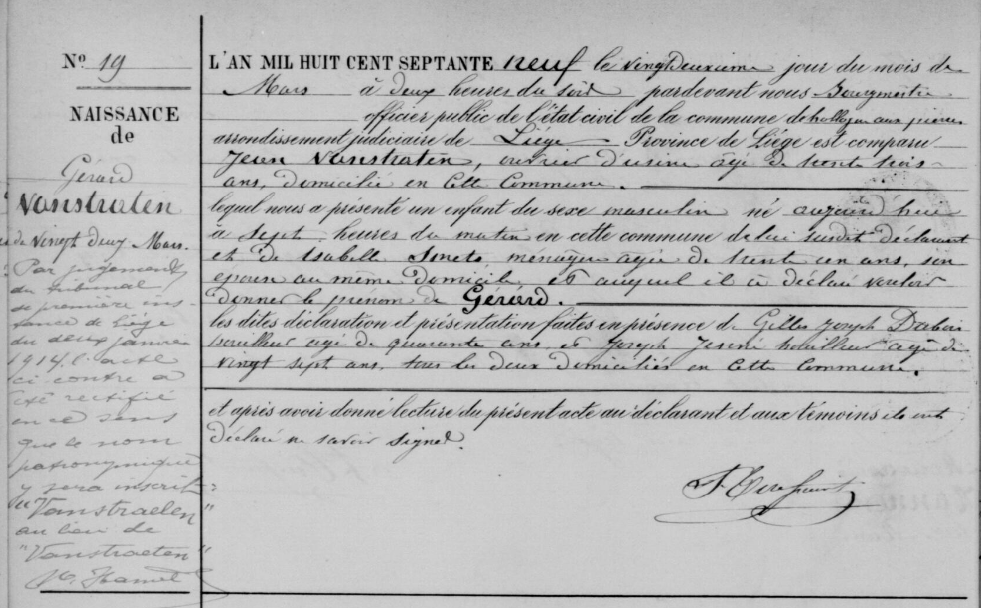 Nº 19
NAISSANCE
de
Gérard
Vanstraten
du Vingt deux Mars.
Par jugement
du tribunal
de première ins-
tance de Liége
du deux janvier
1914 l'acte
ci contre a
été rectifié
en ce sens
que le nom
patronymique
y sera inscrit:
"Vanstraelen"
au lieu de
"Vanstraeten"
Hamel
L'AN MIL HUIT CENT SEPTANTE neuf le vingtdeuxieme jour du mois de
Mars à deux heures du soir pardevant nous Bourgmestre
officier public de l'état civil de la commune de hollogne aux pierres
arrondissement judiciaire de Liége Province de Liége est comparu
Jean Vanstraten, ouvrier d'usine âgé de trente trois
ans, domicilié en cette Commune.
lequel nous a présenté un enfant du sexe masculin né aujourd'hui
à Sept heures du matin en cette commune de lui susdit déclarant
et de Isabelle Smets, ménagère agée de trent un ans, son
épouse au même domicile, et auquel il a déclaré vouloir
donner le prénom de Gérard.
les dites déclaration et présentation faites en présence de Gilles Joseph Dubois
houilleur agé de quarante ans, et Joseph houilleur agé de
vingt sept ans, tous les deux domiciliés en cette Commune.
et après avoir donné lecture du présent acte au déclarant et aux témoins ils ont
déclaré ne savoir signer.